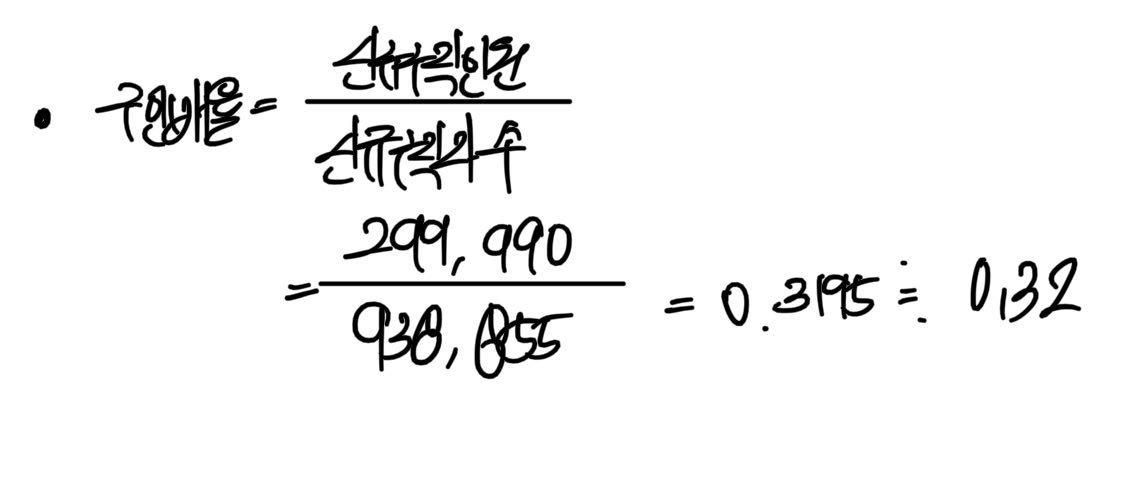 • 구인배율 =
신규구인인원
신규구직자수
= 299,990
938,855
= 0.3195 ≒ 0.32